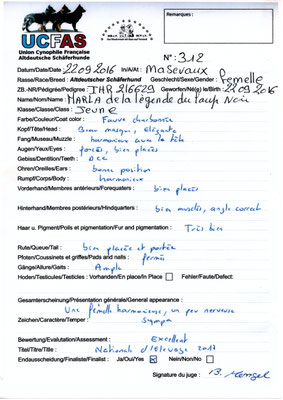 Remarques :
UCFAS
Union Cynophile Française
Altdeutsche Schäferhunde
N° : 312
Datum/Date/Date : 22.09.2016 In/A/At : Masevaux
Rasse/Race/Breed : Altdeutscher Schäferhund Geschlecht/Sexe/Gender : femelle
ZB.-NR/Pédigrée/Pedigree : IHR 216629 Geworfen/Né(e) le/Birth : 22.09.2016
Name/Nom/Name : MARLA de la légende du loup noir
Klasse/Classe/Class : Jeune
Farbe/Couleur/Coat color : Fauve charbonnée
Kopf/Tête/Head : Beau masque, élégante
Fang/Museau/Muzzle : harmonieux avec la tête
Augen/Yeux/Eyes : foncés, bien placés
Gebiss/Dentition/Teeth : OCC
Ohren/Oreilles/Ears : bonne position
Rumpf/Corps/Body : harmonieux
Vorderhand/Membres antérieurs/Forequaters : bien placés
Hinterhand/Membres postérieurs/Hindquarters : bien musclés, angle correct
Haar u. Pigment/Poils et pigmentation/Fur and pigmentation : Très bien
Rute/Queue/Tail : bien placée et portée
Pfoten/Coussinets et griffes/Pads and nails : fermés
Gänge/Allure/Gaits : Ample
Hoden/Testicules/Testicles : Vorhanden/En place/In Place Fehler/Faute/Defect:
Gesamterscheinung/Présentation générale/General appearance :
Une femelle harmonieuse, un peu nerveuse
Zeichen/Caractère/Temper : sympa
Bewertung/Evaluation/Assessment : Excellent
Titel/Titre/Title : Nationale d'Elevage 2017
Endausscheidung/Finaliste/Finalist : Ja/Oui/Yes Nein/Non/No
Signature du juge : B. Menzel